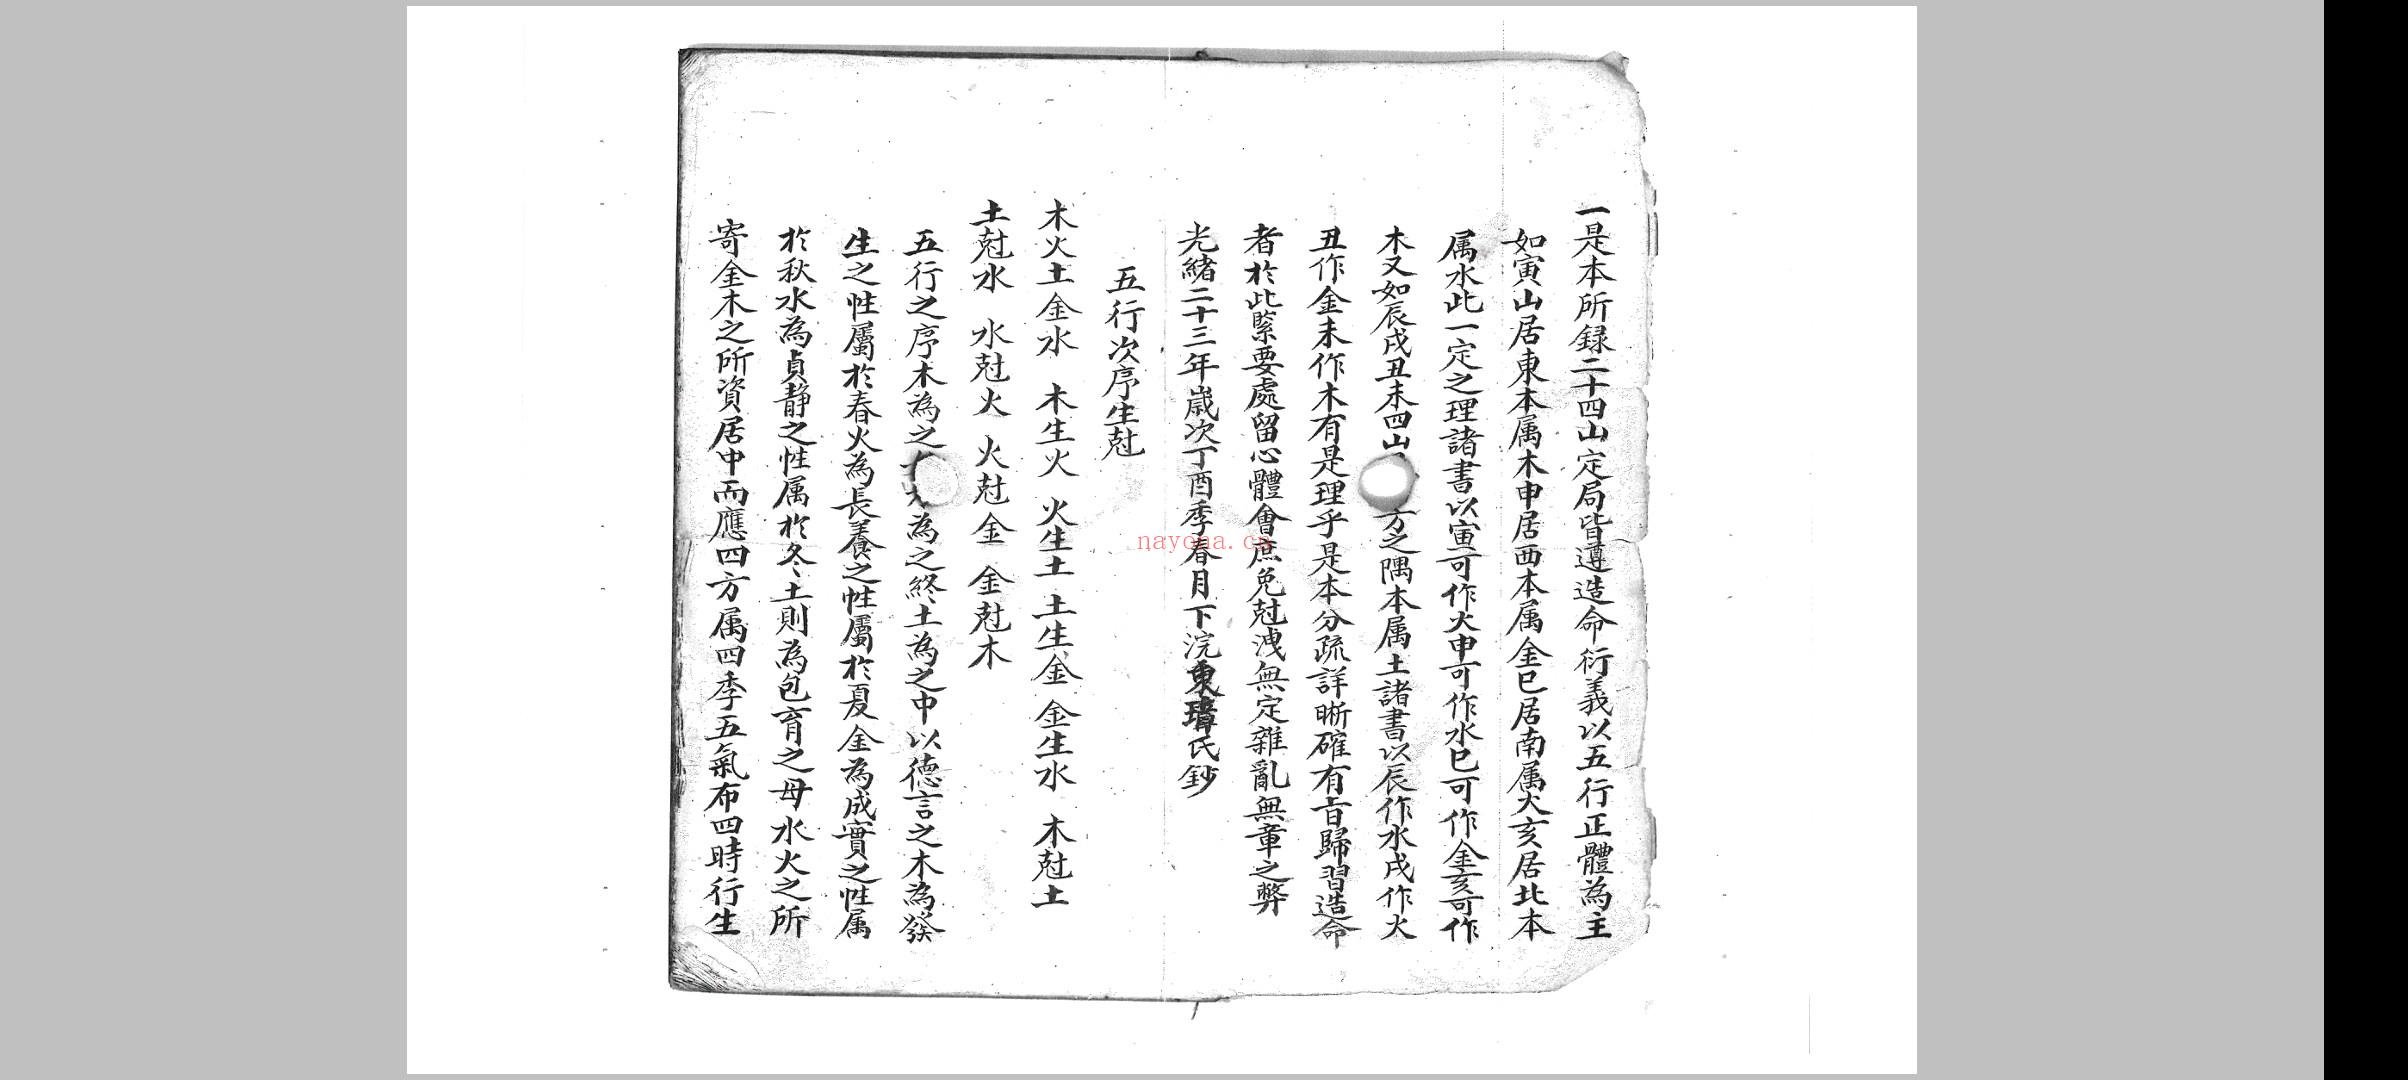 一是本所録二十四山定局皆遵造命衍義以五行正體為主
如寅山居東本属木申居西本属金巳居南属火亥居北本
属水此一定之理諸書以寅可作火申可作水巳可作金亥可作
木又如辰戌丑未四山方之隅本属土諸書以辰作水戌作火
丑作金未作木有是理乎是本分疏詳晰確有旨歸習造命
者於此緊要處留心體會庶免尅洩無定雜亂無章之弊
光緒二十三年歲次丁酉季春月下浣東璋氏鈔
五行次序生尅
木火土金水 木生火 火生土 土生金 金生水 木尅土
土尅水 水尅火 火尅金 金尅木
五行之序木為之為之終土為之中以德言之木為發
生之性屬於春火為長養之性屬於夏金為成實之性属
於秋水為貞静之性属於冬土則為包育之母水火之所
寄金木之所資居中而應四方属四季五氣布四時行生
nayona.cn